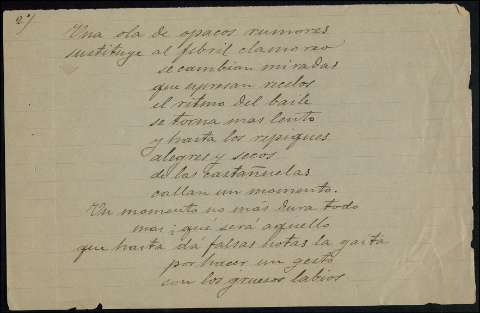 2º)
Una ola de opacos rumores
sustituye al febril clamoreo
se cambian miradas
que expresan recelos
el ritmo del baile
se torna mas lento
y hasta los repiques
alegres y secos
de las castañuelas
callan un momento.
Un momento no más dura todo
mas ¿qué será aquello
que hasta dá falsas notas la gaita
por hacer un gesto
con los gruesos labios